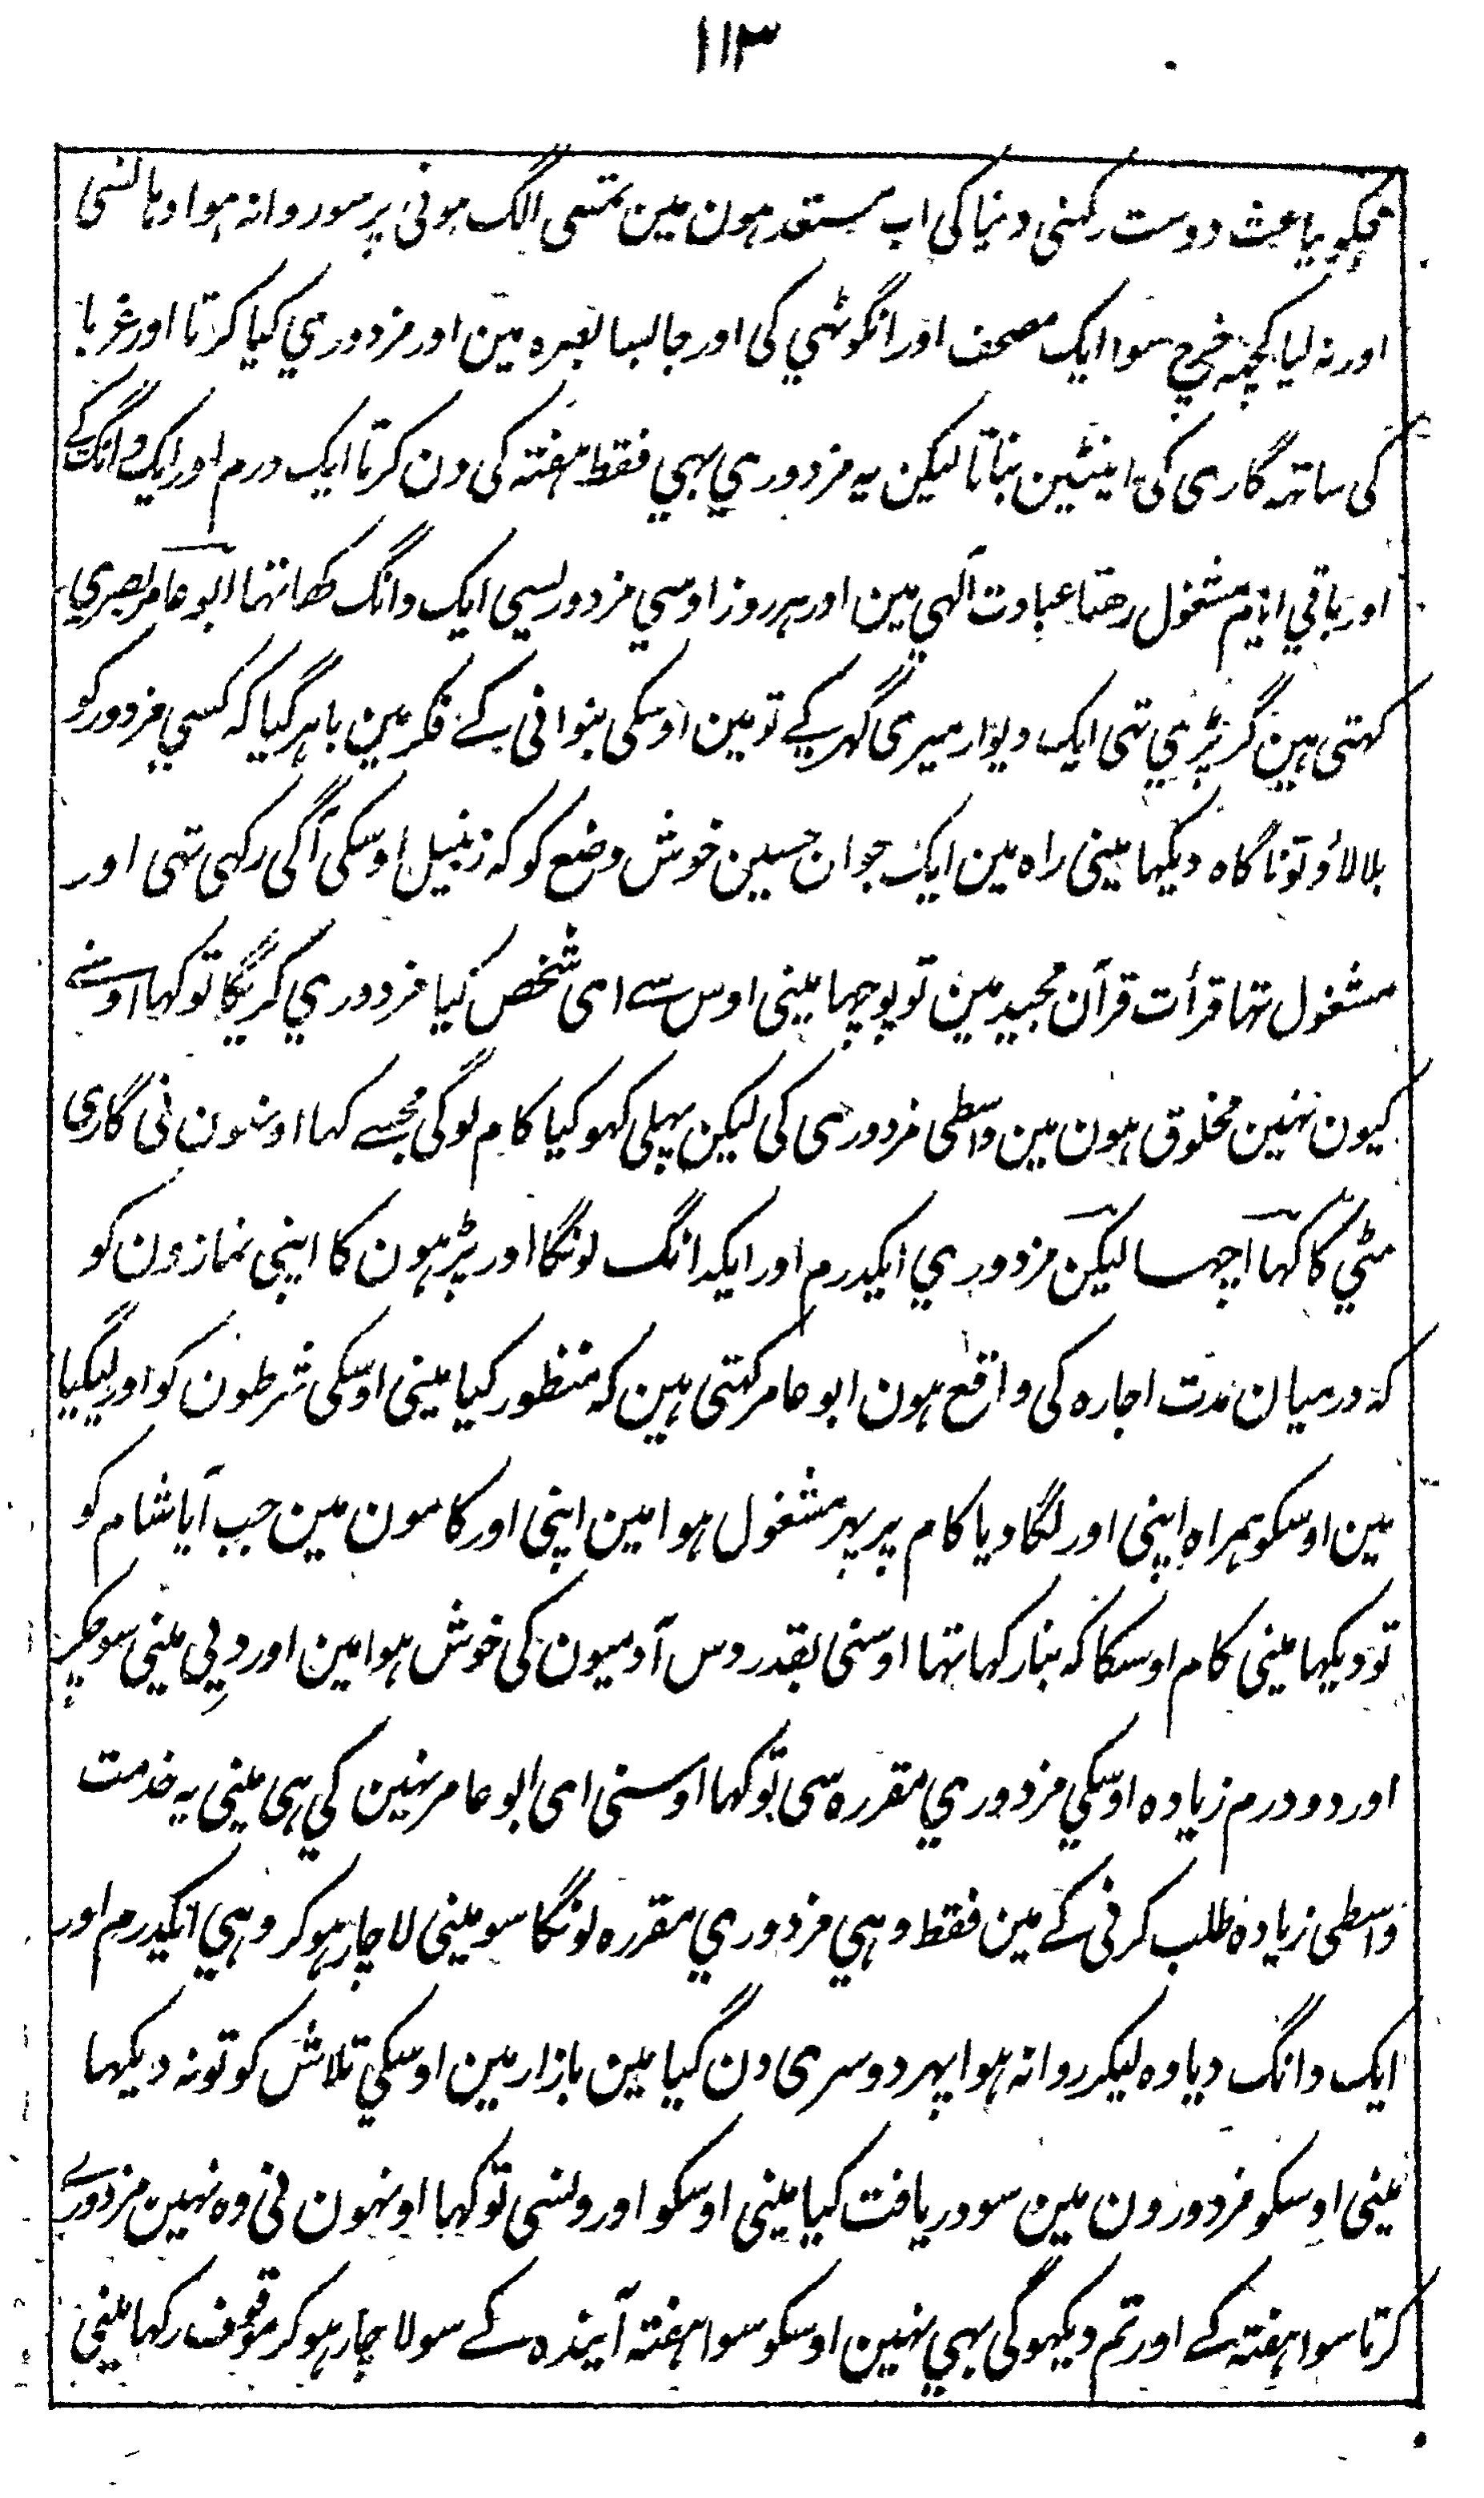 ۱۱۳
مجکو باعث دوست رکہنی دنیا کی اب مستعد ہون مین تمسی الگ ہونی پر سو روانہ ہوا وہانسی
اور نہ لیا کچہہ خرچ سوا ایک مصحف اور انگوٹہي کی اور جا بسا بصرہ مین اور مزدوري کیا کرتا اور غربا
کی ساتہہ گاری کی اینٹین بناتا لیکن یہ مزدوري بہي فقط ہفتہ کی دن کرتا ایک درم اور ایک دانگ کے
اور باقي ایام مشغول رہتا عبادت آلہي مین اور ہر روز اوسي مزدوریسي ایک دانگ کھاتا تہا ابو عامر بصري
کہتی ہین گر پڑي تہی ایک دیوار میری گہر کے تو مین اوسکی بنوانی کے فکر مین باہر گیا کہ کسي مزدور کو
بلا لاؤ تو ناگاہ دیکہا مینی راہ مین ایک جوان حسین خوش وضع کو کہ زنبیل اوسکی آگی رکہی تہی اور
مشغول تہا قرأت قرآن مجید مین تو پوچہا مینی اوس سے ای شخص کیا مزدوري کریگا تو کہا اوسنے
کیون نہین مخلوق ہون مین واسطی مزدوری کی لیکن پہلی کہو کیا کام لوگی مجسے کہا اونہون نی گاری
مٹي کا کہا اچہا لیکن مزدوري ایکدرم اور ایکدانگ لونگا اور پڑہون کا اپنی نمازون کو
کہ درمیان مدت اجارہ کی واقع ہون ابو عامر کہتی ہین کہ منظور کیا مینی اوسکی شرطون کو اور لیگیا
مین اوسکو ہمراہ اپنی اور لگا دیا کام پر پہر مشغول ہوا مین اپنی اور کامون مین جب آیا شام کو
تو دیکہا مینی کام اوسکا کہ بنا رکہا تہا اوسنی بقدر دس آدمیون کی خوش ہوا مین اور دیي مینی سوچکر
اور دو درم زیادہ اوسکي مزدوري مقررہ سی تو کہا اوسنی ای ابو عامر نہین کي ہی مینی یہ خدمت
واسطی زیادہ طلب کرنی کے مین فقط وہي مزدوري مقررہ لونگا سو مینی لاچار ہوکر وہي ایکدرم اور
ایک دانگ دیا وہ لیکر روانہ ہوا پہر دوسری دن گیا مین بازار مین اوسکي تلاش کو تو نہ دیکہا
مینی اوسکو مزدورون مین سو دریافت کیا مینی اوسکو اورونسی تو کہا اونہون نی وہ نہین مزدورے
کرتا سوا ہفتہ کے اور تم دیکہوگی بہي نہین اوسکو سوا ہفتہ آیندہ کے سو لاچار ہوکر موقوف رکہا مینی